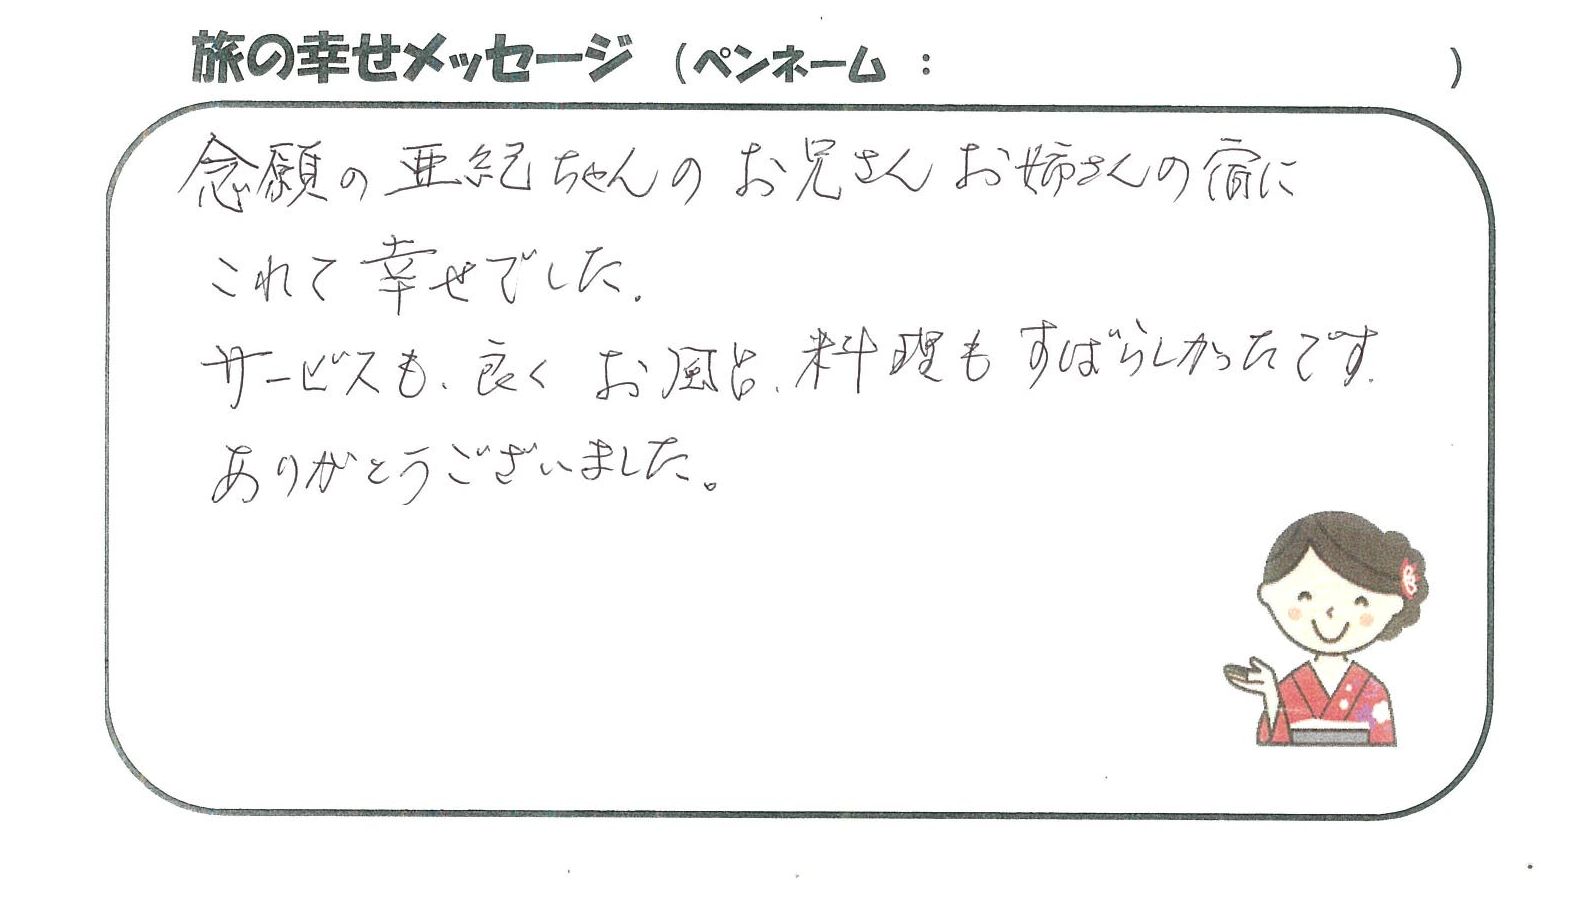 旅の幸せメッセージ （ペンネーム ： ）
念願の亜紀ちゃんのお兄さんお姉さんの宿に
これて幸せでした.
サービスも、良く お風呂、料理も すばらしかったです.
ありがとうございました。